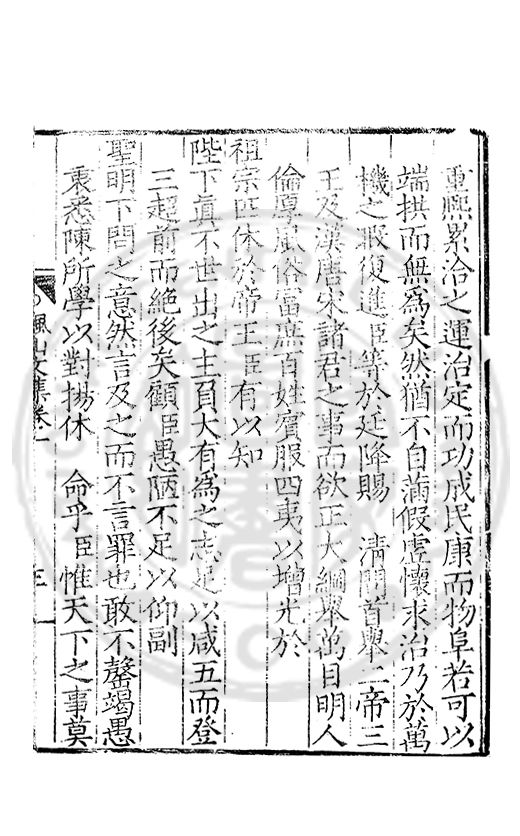 重熙累洽之運治定而功成民康而物阜若可以
端拱而無為矣然猶不自滿假虛懷求治乃於萬
機之暇復進臣等於廷降賜 清問首舉二帝三
王及漢唐宋諸君之事而欲正大綱舉萬目明人
倫厚風俗富庶百姓賓服四夷以增光於
祖宗匹休於帝王臣有以知
陛下真不世出之主負大有為之志足以咸五而登
三超前而絕後矣顧臣愚陋不足以仰副
聖明下問之意然言及之而不言罪也敢不罄竭愚
衷悉陳所學以對揚休 命乎臣惟天下之事莫
楓山文集卷一
三